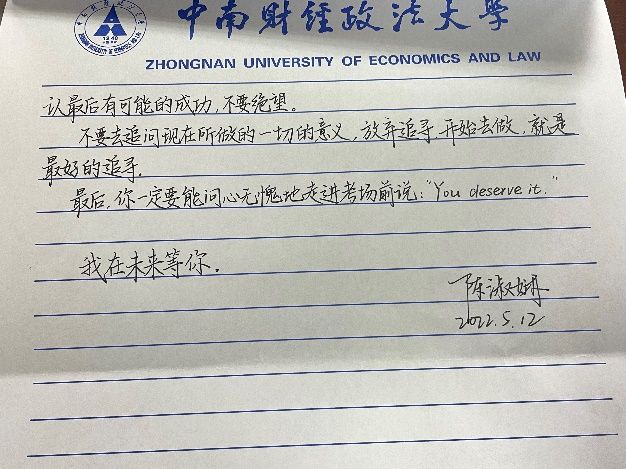 中南财经政法大学
ZHONGNAN UNIVERSITY OF ECONOMICS AND LAW
1948
认最后有可能的成功,不要绝望。
不要去追问现在所做的一切的意义,放弃追寻,开始去做,就是
最好的追寻.
最后,你一定要能问心无愧地走进考场前说:"You deserve it."
我在未来等你.
陈淑
2022.5.12